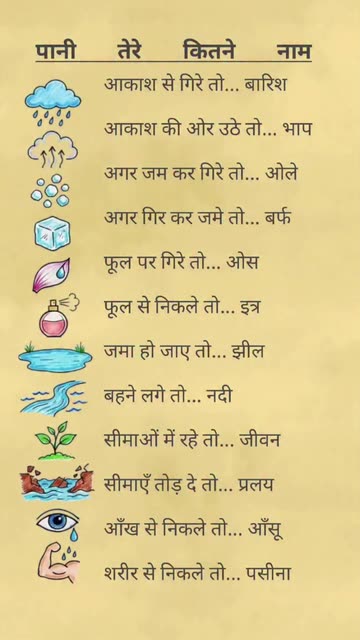 पानी तेरे कितने नाम
आकाश से गिरे तो... बारिश
आकाश की ओर उठे तो... भाप
अगर जम कर गिरे तो... ओले
अगर गिर कर जमे तो... बर्फ
फूल पर गिरे तो... ओस
फूल से निकले तो... इत्र
जमा हो जाए तो... झील
बहने लगे तो... नदी
सीमाओं में रहे तो... जीवन
सीमाएँ तोड़ दे तो... प्रलय
आँख से निकले तो... आँसू
शरीर से निकले तो... पसीना